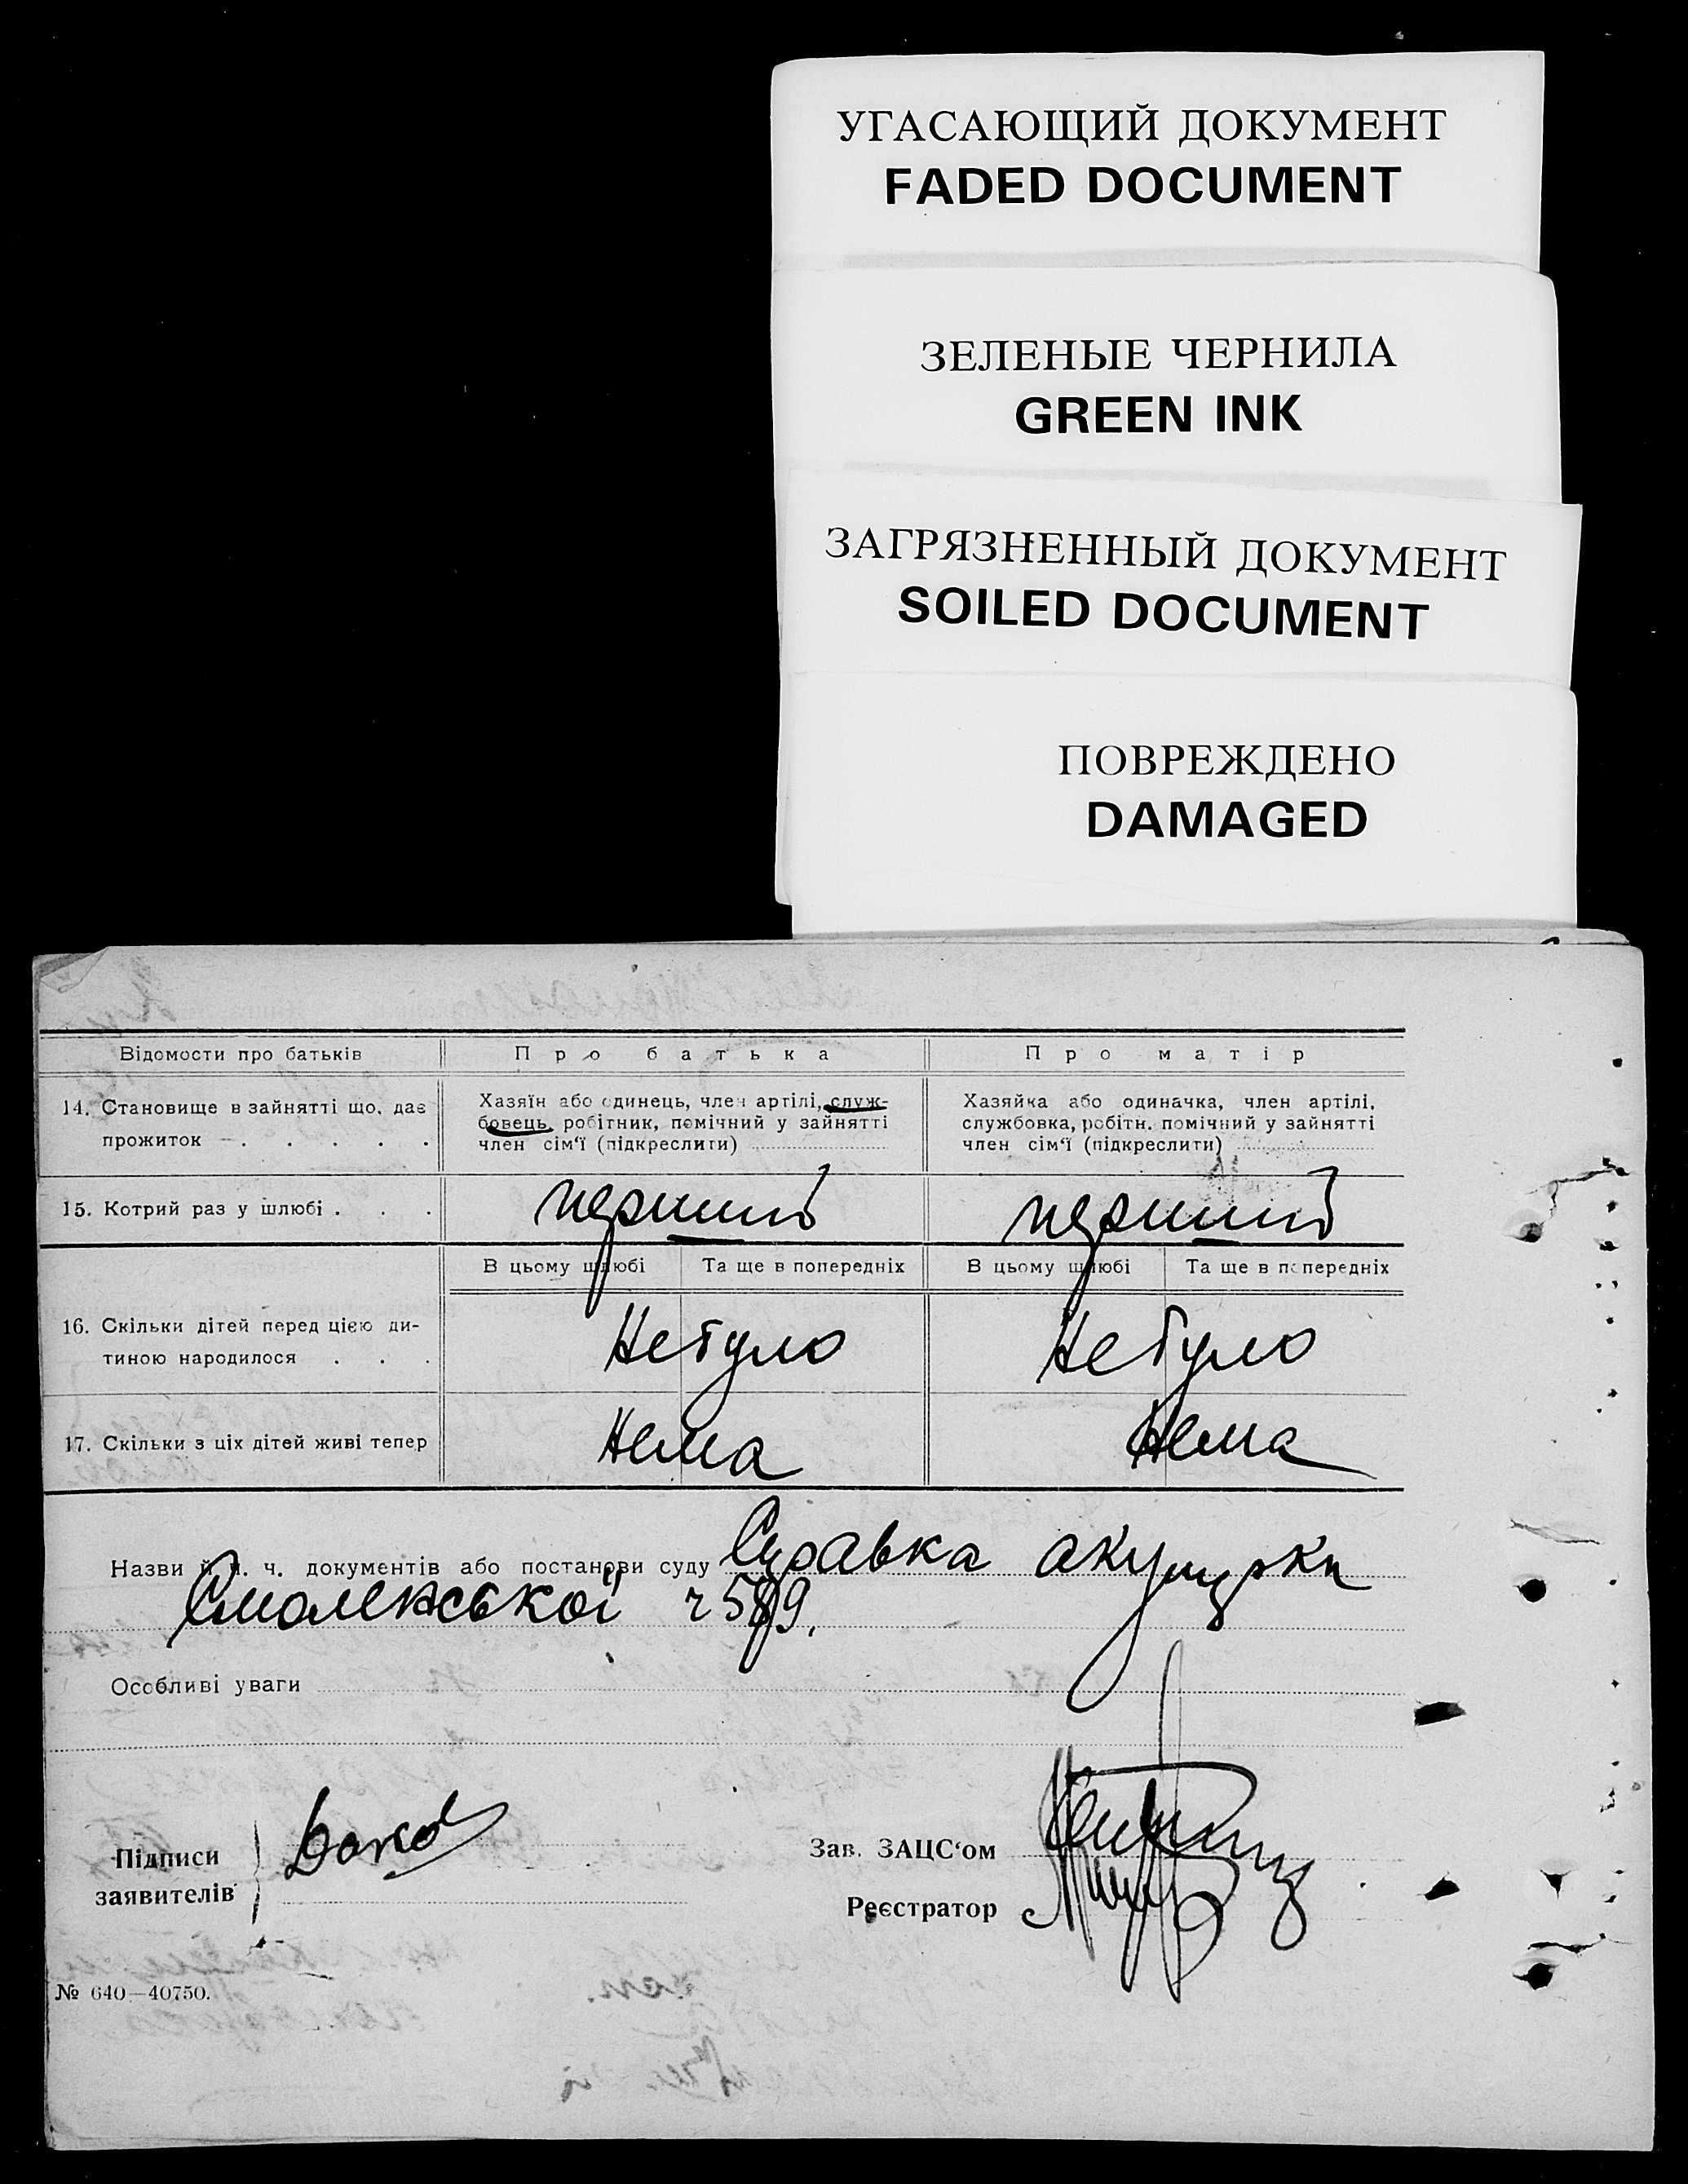 УГАСАЮЩИЙ ДОКУМЕНТ
FADED DOCUMENT
ЗЕЛЕНЫЕ ЧЕРНИЛА
GREEN INK
ЗАГРЯЗНЕННЫЙ ДОКУМЕНТ
SOILED DOCUMENT
ПОВРЕЖДЕНО
DAMAGED
Відомости про батьків
Про батька
Про матір
14. Становище в зайнятті що, дає
прожиток . . . . .
Хазяїн або одинець, член артілі, служ-
бовець, робітник, помічний у зайнятті
член сім'ї (підкреслити)
Хазяйка або одиначка, член артілі,
службовка, робітн. помічний у зайнятті
член сім'ї (підкреслити)
15. Котрий раз у шлюбі . . .
перший
перший
В цьому шлюбі
Та ще в попередніх
В цьому шлюбі
Та ще в попередніх
16. Скільки дітей перед цією ди-
тиною народилося . . .
Небуло
Небуло
17. Скільки з ціх дітей живі тепер
Нема
Нема
Назви й ч. ч. документів або постанови суду Справка акушерки
Смоленської ч 589.
Особливі уваги
Підписи
заявителів
Зав. ЗАЦС'ом
Реєстратор
№ 640—40750.